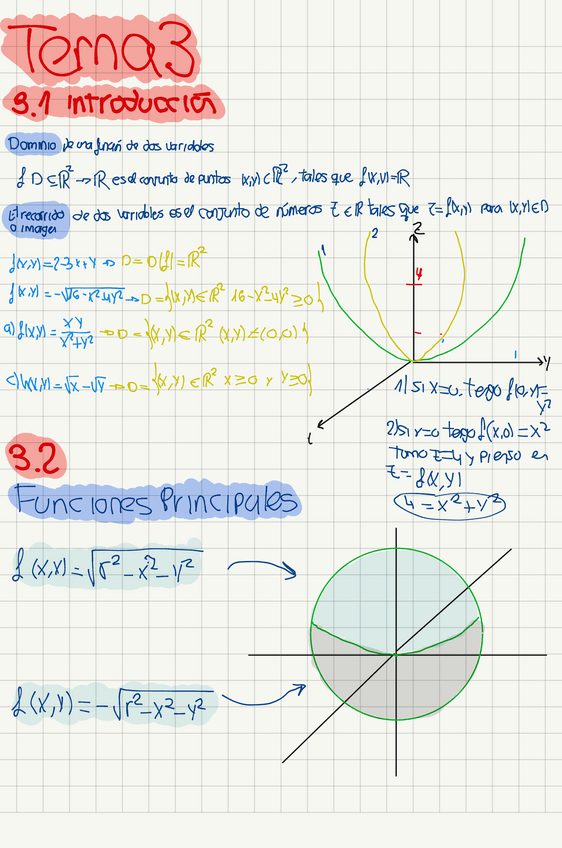 Tema 3
3.1 Introducción
Dominio de una función de dos variables
f D ⊆ ℝ² → ℝ es el conjunto de puntos (x,y) ⊂ ℝ², tales que f(x,y)=ℝ
El recorrido o imagen de dos variables es el conjunto de números z ∈ ℝ tales que z=f(x,y) para (x,y)∈D
f(x,y)=2-3x+y → D = D(f)=ℝ²
f(x,y)=-√16-x²-4y² → D={(x,y)∈ℝ² 16-x²-4y²≥0}
a) f(x,y)= xy/x²+y² → D={(x,y)∈ℝ² (x,y)≠(0,0)}
c) h(x,y)=√x-√y → D={(x,y)∈ℝ² x≥0 y y≥0}
1
2
z
4
y
1) si x=0. tengo f(0,y)= y²
2) si y=0 tengo f(x,0)=x²
tomo z=4 y pienso en
z=f(x,y)
4=x²+y²
3.2
Funciones Principales
f(x,x)=√r²-x²-y²
f(x,y)=-√r²-x²-y²